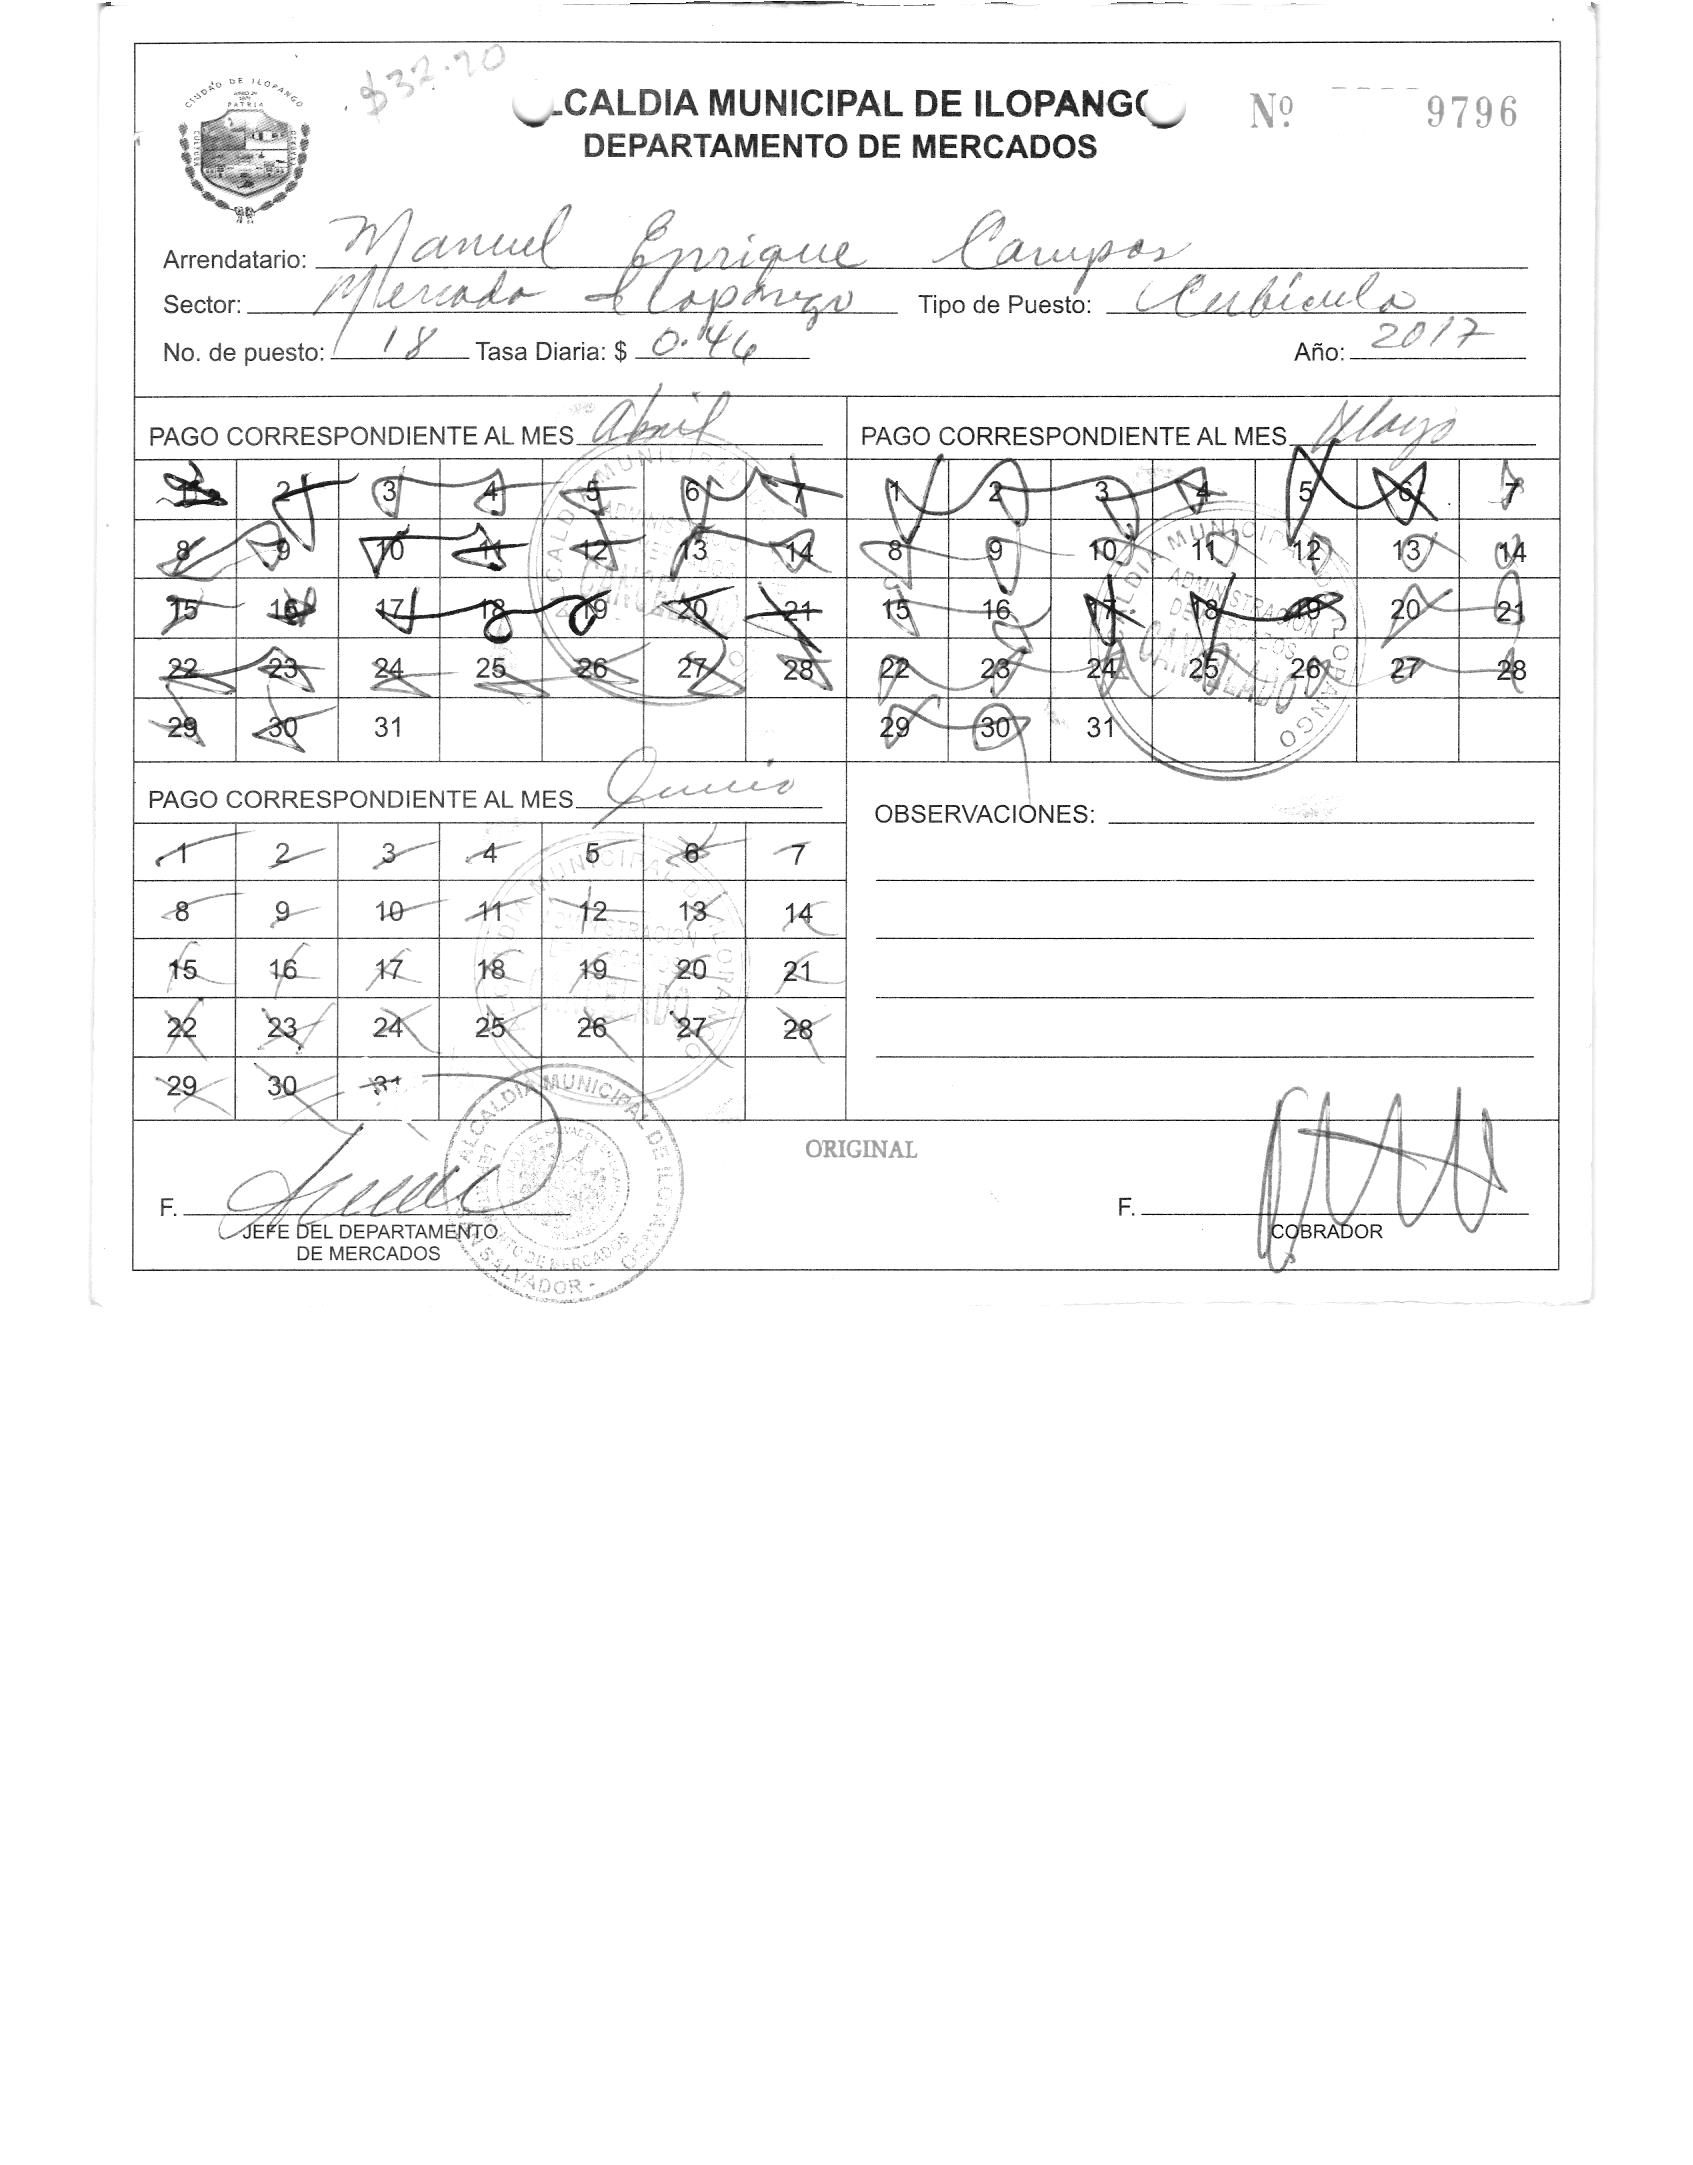 $32.20
CIUDAD DE ILOPANGO
PATRIA
ALCALDIA MUNICIPAL DE ILOPANGO
DEPARTAMENTO DE MERCADOS
Nº 9796
Arrendatario: Manuel Enrique Campos
Sector: Mercado Ilopango Tipo de Puesto: Cubículo
No. de puesto: 18 Tasa Diaria: $ 0.46 Año: 2017
PAGO CORRESPONDIENTE AL MES Abril
1 2 3 4 5 6 7
8 9 10 11 12 13 14
15 16 17 18 19 20 21
22 23 24 25 26 27 28
29 30 31
PAGO CORRESPONDIENTE AL MES Mayo
1 2 3 4 5 6 7
8 9 10 11 12 13 14
15 16 17 18 19 20 21
22 23 24 25 26 27 28
29 30 31
ALCALDIA MUNICIPAL DE ILOPANGO
ADMINISTRACION
DE MERCADOS
CANCELADO
PAGO CORRESPONDIENTE AL MES Junio
1 2 3 4 5 6 7
8 9 10 11 12 13 14
15 16 17 18 19 20 21
22 23 24 25 26 27 28
29 30 31
OBSERVACIONES:
ORIGINAL
F.
JEFE DEL DEPARTAMENTO
DE MERCADOS
ALCALDIA MUNICIPAL DE ILOPANGO
F.
COBRADOR